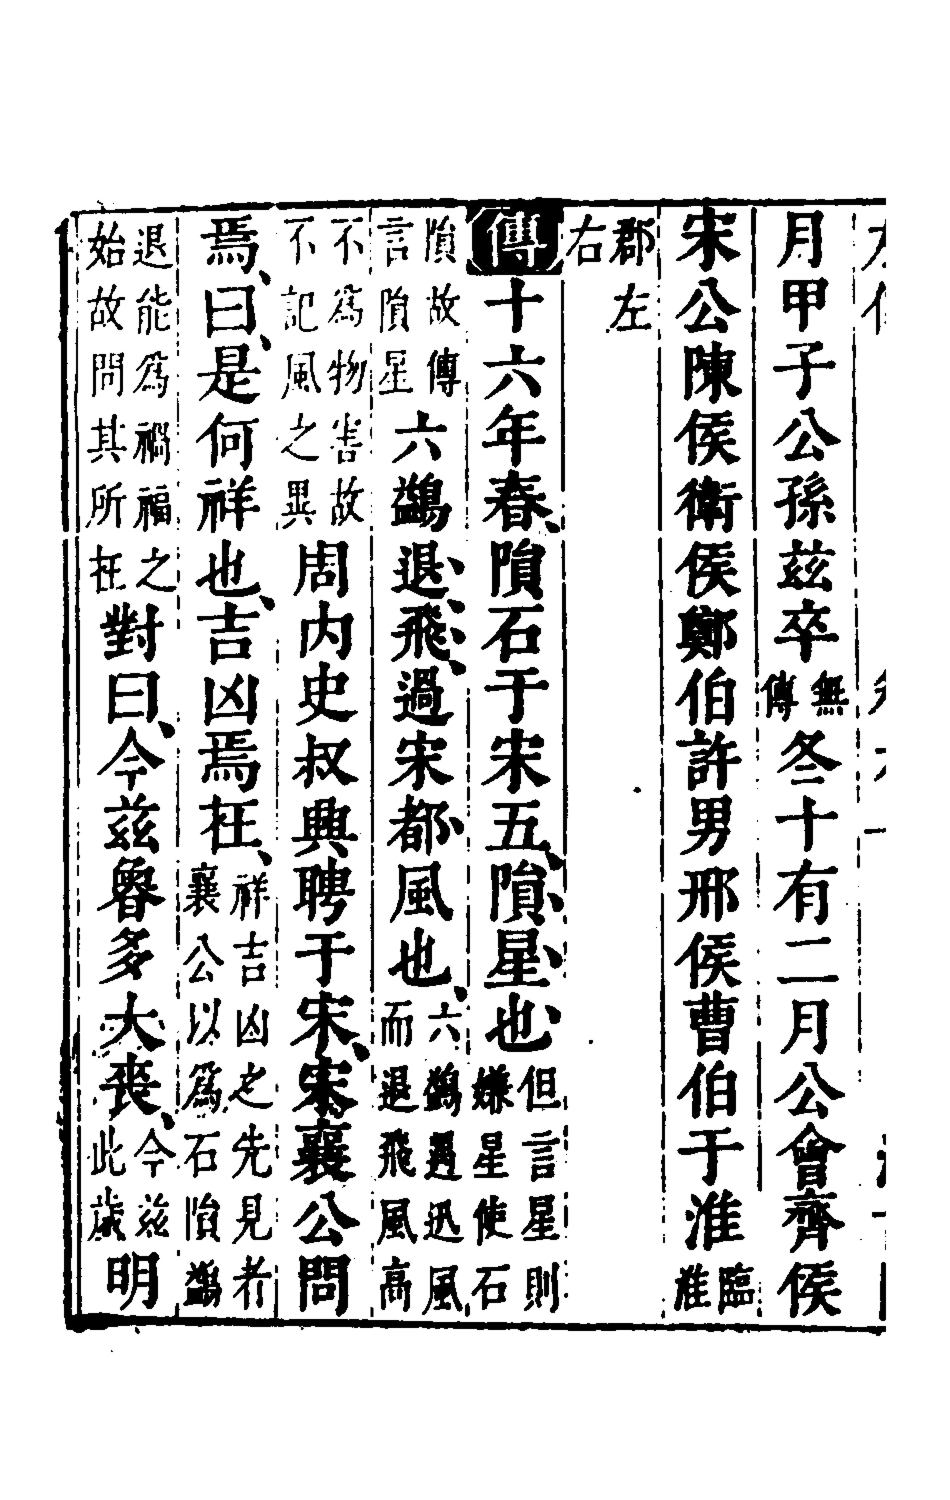 月甲子公孫茲卒無傳冬十有二月公會齊侯
宋公陳侯衛侯鄭伯許男邢侯曹伯于淮臨淮
郡左右
傳十六年春、隕石于宋五、隕星也、但言星則嫌星使石
隕故傳言隕星六鷁退飛、過宋都、風也、六鷁遇迅風而退飛風高
不爲物害故不記風之異周内史叔興聘于宋、宋襄公問
焉、曰、是何祥也、吉凶焉在、祥吉凶之先見者襄公以爲石隕鷁
退能爲禍福之始故問其所在對曰、今茲魯多大喪、今茲此歲明